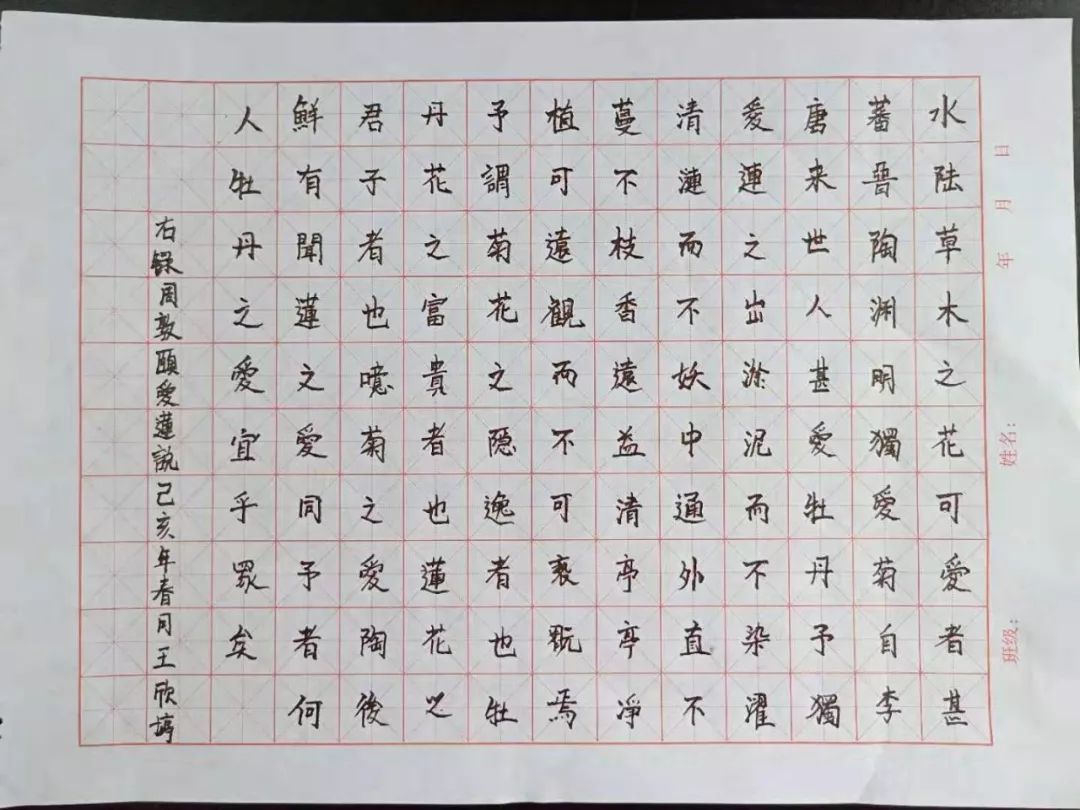 水陆草木之花可愛者甚
蕃晉陶渊明獨愛菊自李
唐来世人甚愛牡丹予獨
愛蓮之出淤泥而不染濯
清漣而不妖中通外直不
蔓不枝香遠益清亭亭净
植可遠觀而不可褻翫焉
予謂菊花之隐逸者也牡
丹花之富貴者也蓮花之
君子者也噫菊之愛陶後
鮮有聞蓮之愛同予者何
人牡丹之愛宜乎眾矣
右録周敦頤愛蓮說己亥年春月王欣婷
日
月
年
姓名：
班级：